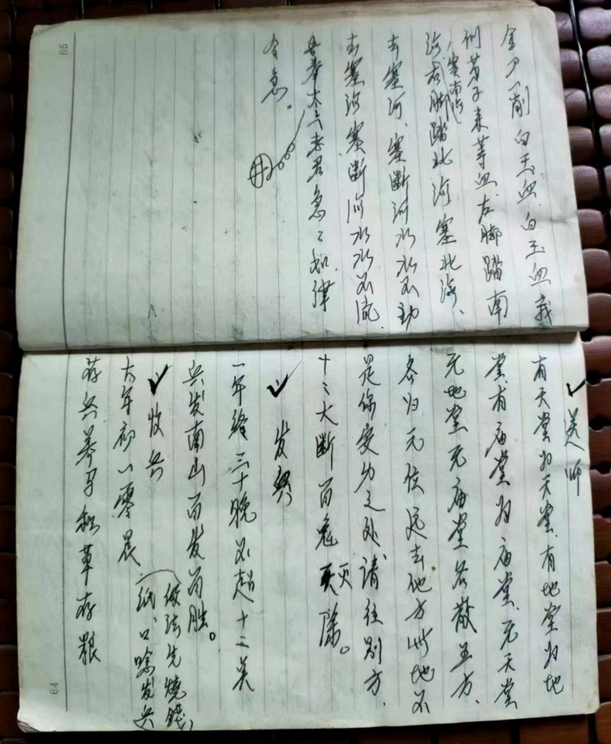 ✓送师
有天堂归天堂、有地堂归地
堂、有庙堂归庙堂、无天堂
无地堂无庙堂各散五方、
各归无位远去他方此地不
是你安力之处、请往别方、
十二大断百鬼灭除。
✓发兵
一年终三十晚不超十二关
兵发南山百发百胜。
✓收兵
大年初一零晨
存兵养马积草存粮
(缘法先烧钱
纸、口唸发兵
64
金刀一削白玉血、白玉血我
刺茅子来等血、左脚踏南
河塞南海
海、右脚踏北河塞北海、
去塞河、塞断河水水不动
去塞沙、塞断川水水不流
吾奉太上老君急〻如律
令急。
65